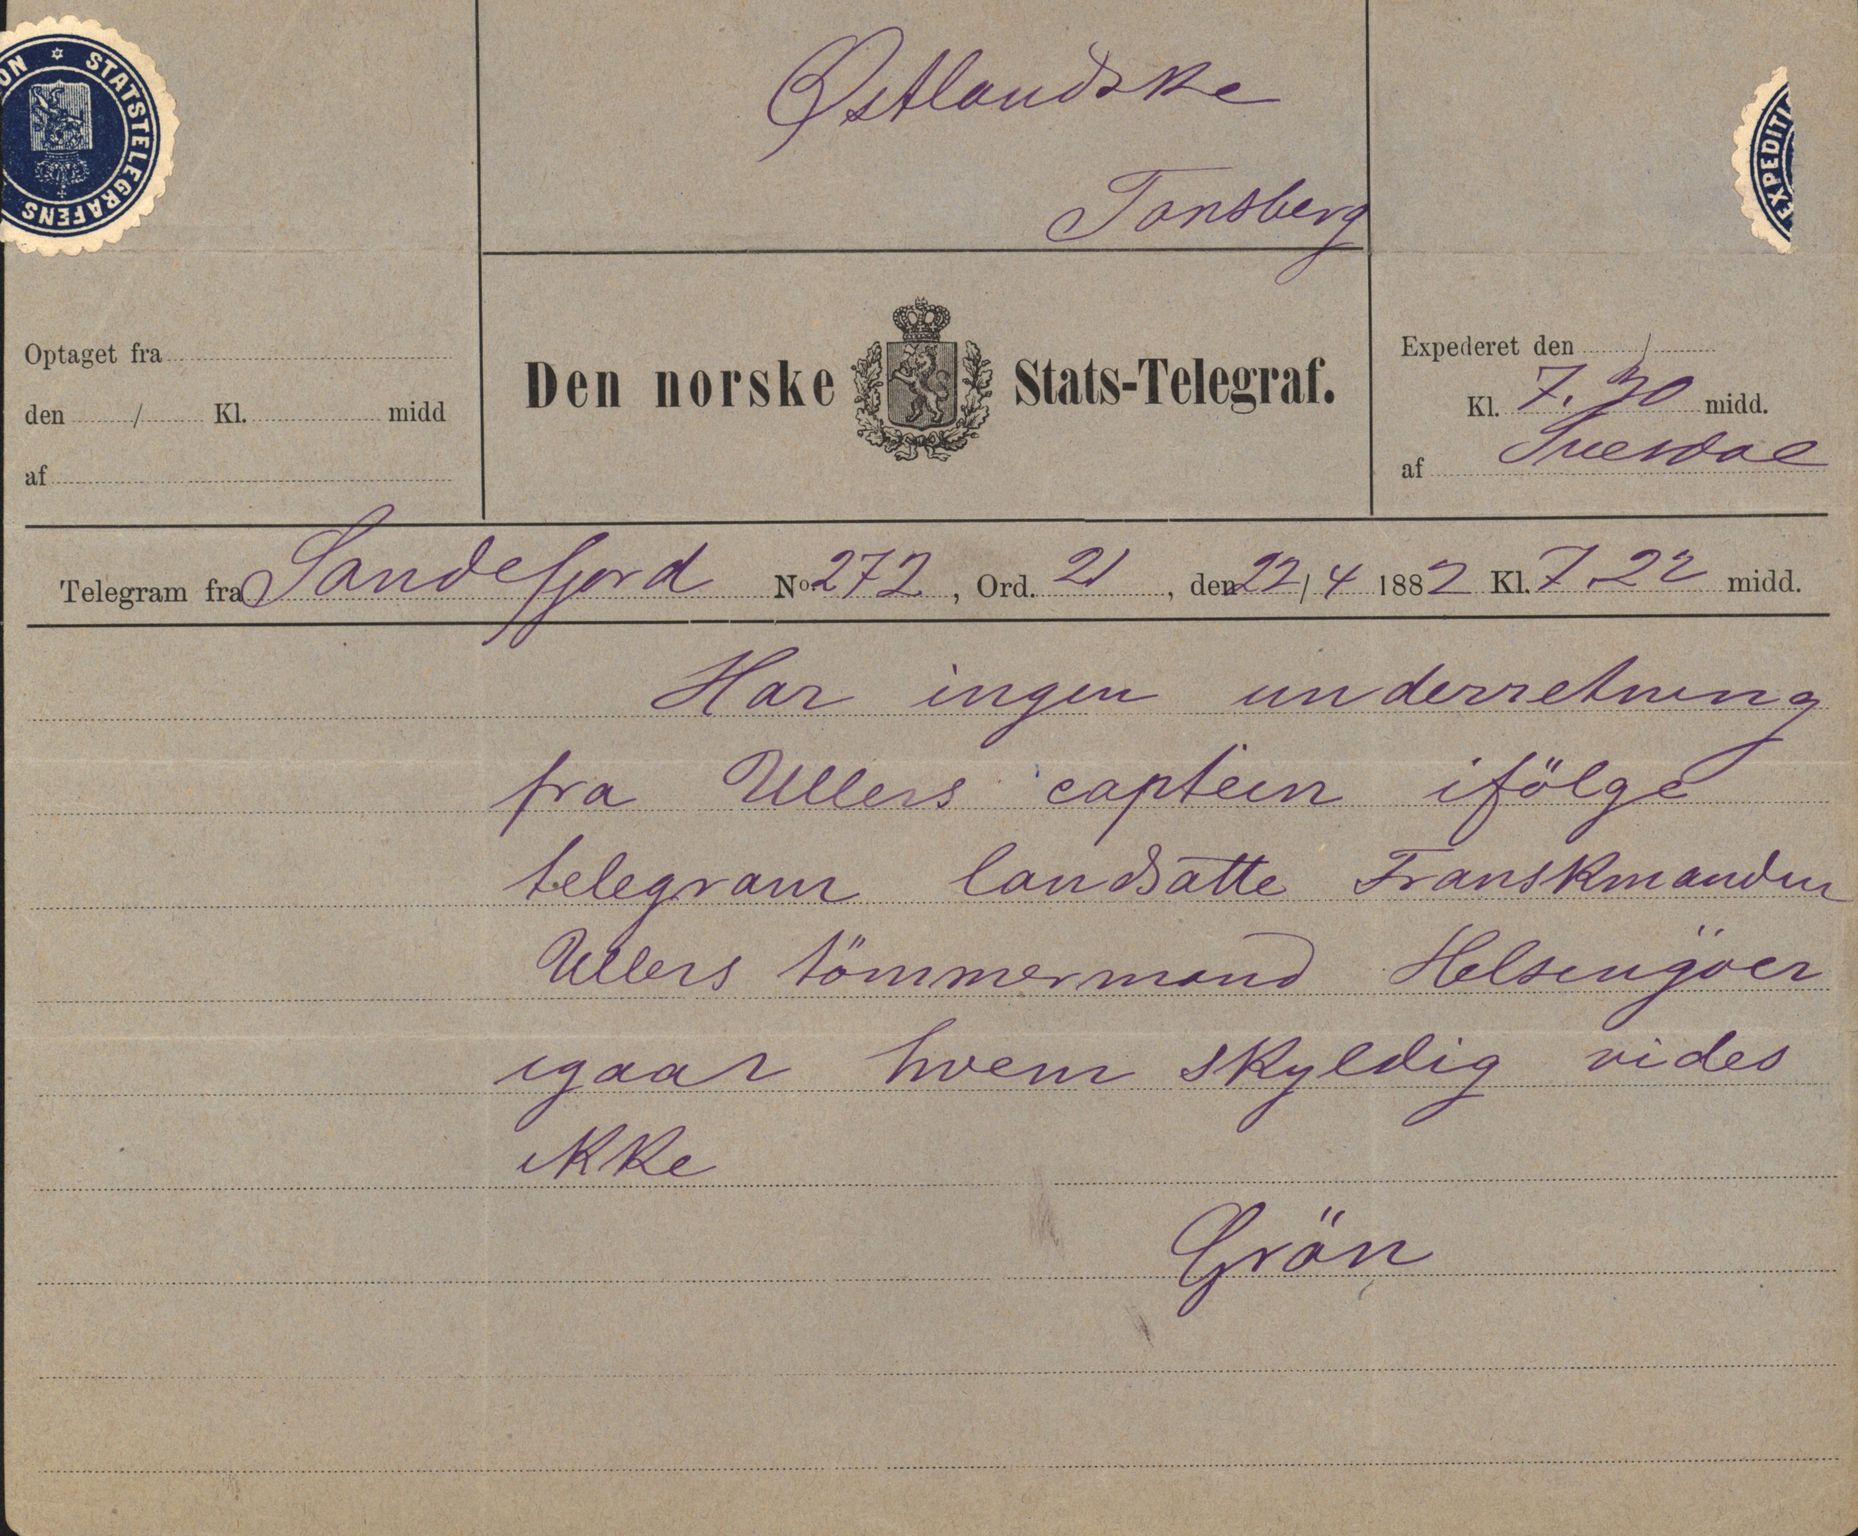 STATSTELEGRAFENS
ON
EXPEDITI
Østlandske
Tønsberg
Optaget fra
den / Kl. midd
af
Den norske Stats-Telegraf.
Expederet den /
Kl. 7.30 midd.
af
Telegram fra Sandefjord No. 272, Ord. 21, den 22/4 1882 Kl. 7.22 midd.
Har ingen underretning
fra Ullers captein ifölge
telegram landsatte Franskmanden
Ullers tömmermand Helsingöer
igaar hvem skyldig vides
ikke
Grön